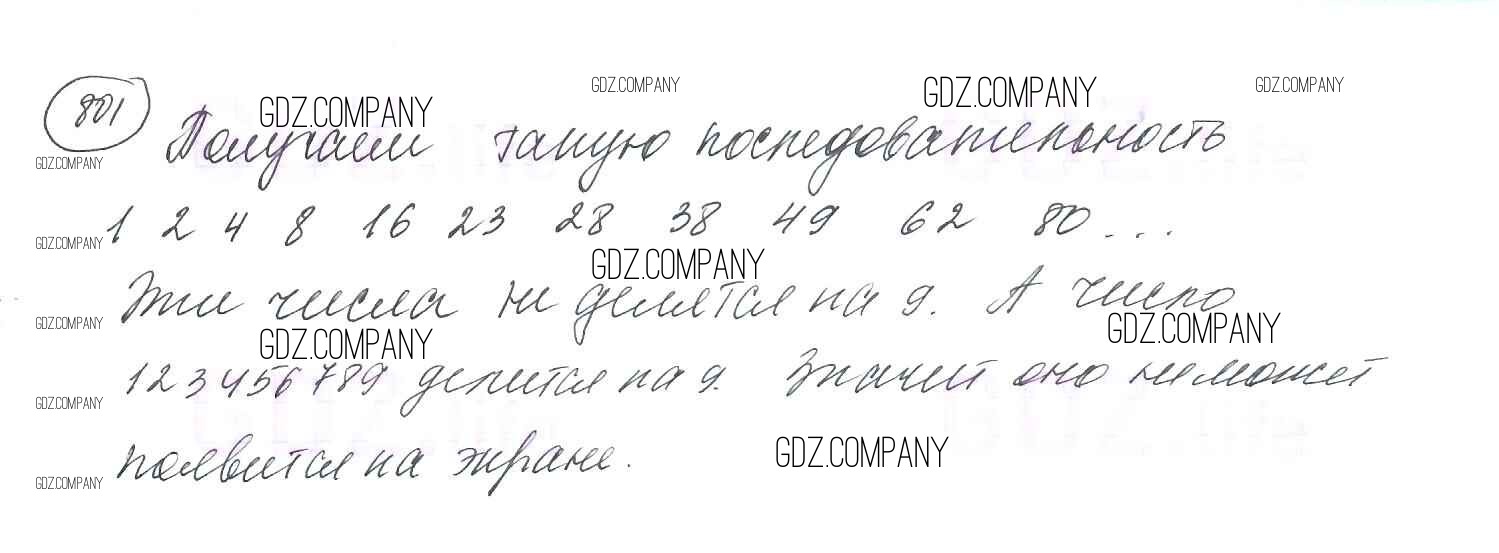 801
GDZ.COMPANY GDZ.COMPANY GDZ.COMPANY GDZ.COMPANY
Получаем такую последовательность
GDZ.COMPANY
1 2 4 8 16 23 28 38 49 62 80 ...
GDZ.COMPANY
GDZ.COMPANY
Эти числа не делятся на 9. А число
GDZ.COMPANY GDZ.COMPANY GDZ.COMPANY
123456789 делится на 9. Значит оно не может
GDZ.COMPANY
появится на экране.
GDZ.COMPANY GDZ.COMPANY